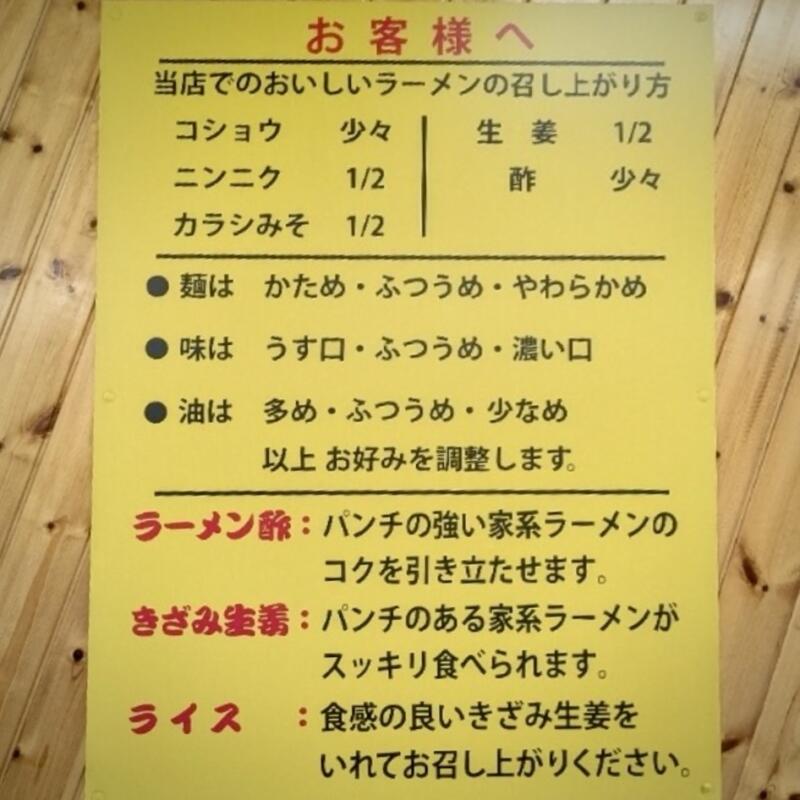 お客様へ
当店でのおいしいラーメンの召し上がり方
コショウ 少々 生姜 1/2
ニンニク 1/2 酢 少々
カラシみそ 1/2
● 麺は かため・ふつうめ・やわらかめ
● 味は うす口・ふつうめ・濃い口
● 油は 多め・ふつうめ・少なめ
以上 お好みを調整します。
ラーメン酢：パンチの強い家系ラーメンの
コクを引き立たせます。
きざみ生姜：パンチのある家系ラーメンが
スッキリ食べられます。
ライス ：食感の良いきざみ生姜を
いれてお召し上がりください。